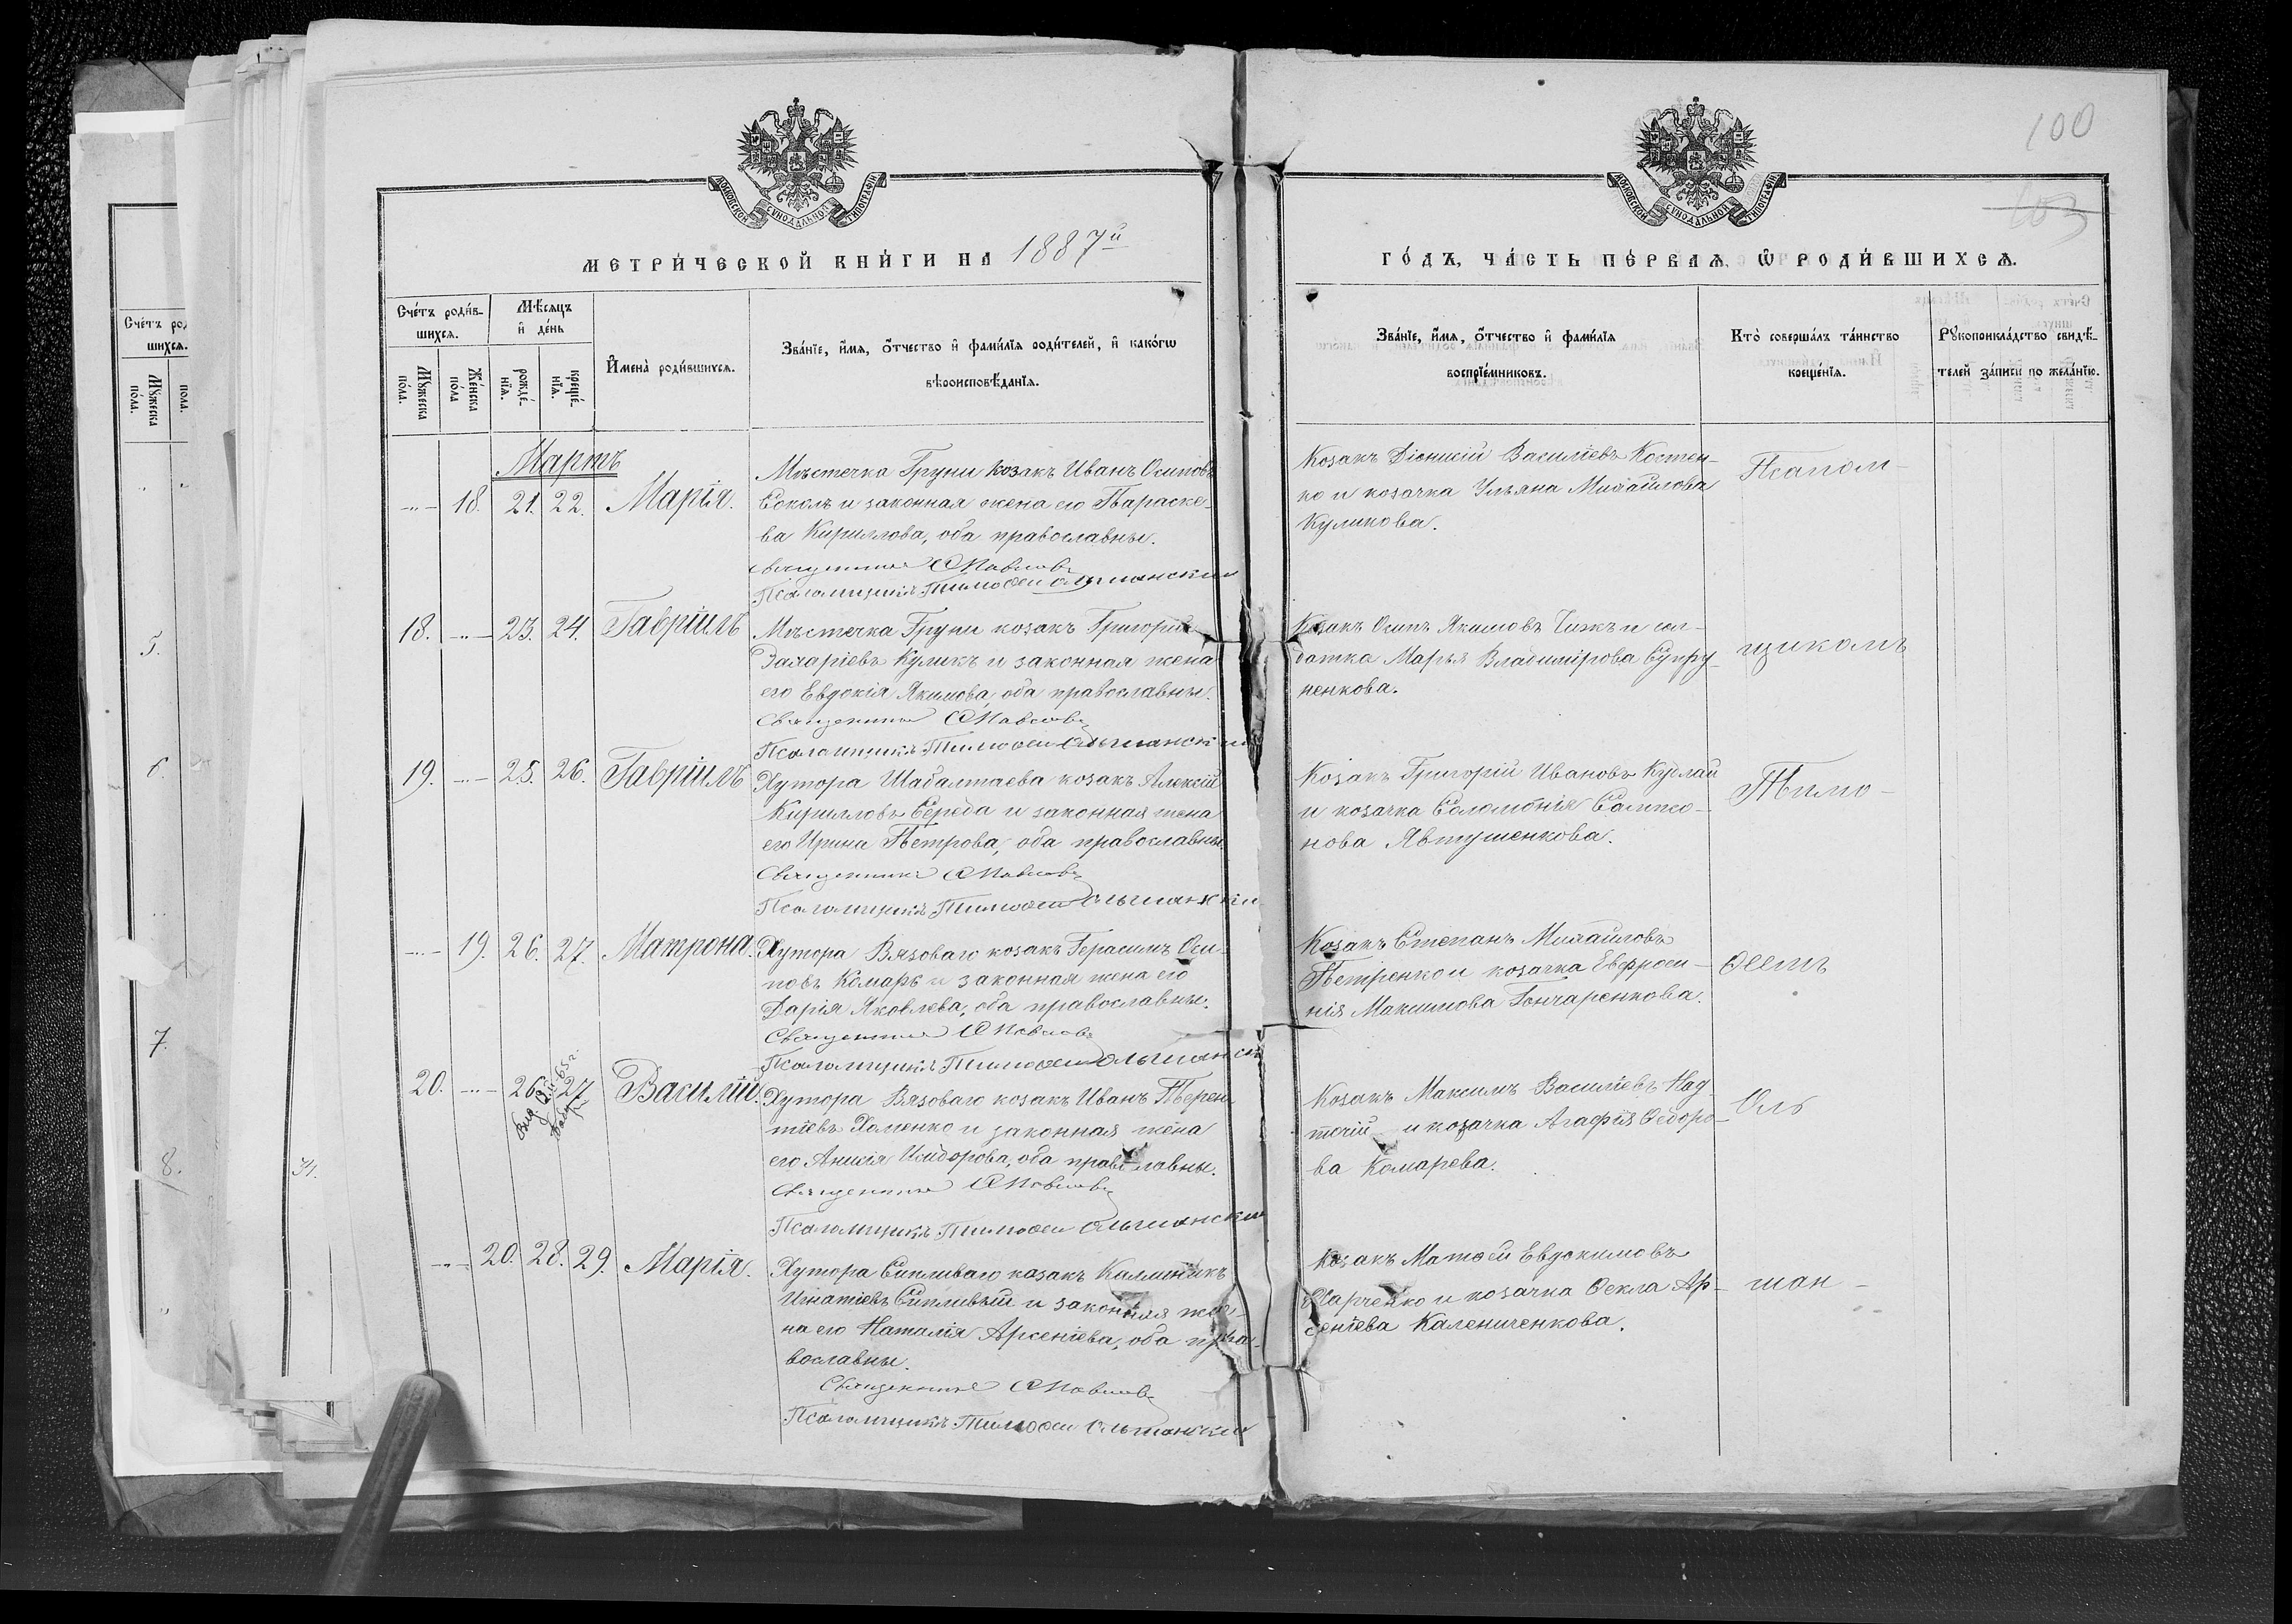 100
103
МОСКОВСКОЙ СУНОДАЛЬНОЙ ТИПОГРАФІИ
МОСКОВСКОЙ СУНОДАЛЬНОЙ ТИПОГРАФІИ
МЕТРИ́ЧЕСКОЙ КНИ́ГИ НА 1887й
ГО́ДЪ, ЧА́СТЬ ПЕ́РВАЯ, Ѿ РОДИ́ВШИХСЯ.
Сче́тъ роди́в-
шихся.
Мѣ́сяцъ
и҆ де́нь
Мꙋ́жеска
по́ла.
Же́нска
пола
рожде́-
нїѧ.
креще́-
нїѧ.
И҆мена̀ роди́вшихся.
Зва́нїе, и҆́мя, ѻ҆́тчество и҆ фами́лїя роди́телей, и҆ како́гѡ
вѣроисповѣ́данїя.
Зва́нїе, и҆́мя, ѻ҆́тчество и҆ фами́лїя
воспрїе́мниковъ.
Кто̀ соверша́лъ та́инство
креще́нїя.
Рꙋкоприкла́дство свидѣ́-
телей за́писи по жела́нїю.
Счéтъ ро
шихся.
Мꙋ́жеска
по́ла.
пола.
5.
6.
7.
8.
Мартъ
18. 21. 22. Марія.
Мѣстечка Груни козакъ Иванъ Осиповъ
Соколъ и законная жена его Параске-
ва Кириллова, оба православны.
Священникъ Павловъ
Псаломщикъ Тимоѳей Ольшанскій
Козакъ Діонисій Василіевъ Костен-
ко и козачка Ульяна Михайлова
Куликова.
Псалом-
18. 23. 24. Гавріилъ
Мѣстечка Груни козакъ Григорій
Захаріевъ Куликъ и законная жена
его Евдокія Якимова, оба православны.
Священникъ Павловъ
Псаломщикъ Тимоѳей Ольшанскій
Козакъ Осипъ Якимовъ Чижъ и сол-
датка Марья Владимірова Супру-
ненкова.
щикомъ
19. 25. 26. Гавріилъ
Хутора Шабалтаева козакъ Алексій
Кирилловъ Середа и законная жена
его Ирина Петрова, оба православны.
Священникъ Павловъ
Псаломщикъ Тимоѳей Ольшанскій
Козакъ Григорій Ивановъ Кудлай
и козачка Соломонія Сампсо-
нова Явтушенкова.
Тимо-
19. 26. 27. Матрона.
Хутора Вязоваго козакъ Герасимъ Оси-
повъ Комарь и законная жена его
Дарія Яковлева, оба православны.
Священникъ Павловъ
Псаломщикъ Тимоѳей Ольшанск
Козакъ Степанъ Михайловъ
Петренко и козачка Евфроси-
нія Максимова Гончаренкова.
ѳеемъ
20. 26. 27. Василій.
Хутора Вязоваго козакъ Иванъ Терен-
тіевъ Хоменко и законная жена
его Анисія Исидорова, оба православны.
Священникъ Павловъ
Псаломщикъ Тимоѳей Ольшанскій
Козакъ Максимъ Василіевъ Над-
точій и козачка Агафія Ѳедоро-
ва Комарева.
Оль
20. 28. 29. Марія.
Хутора Сипливаго козакъ Каллиникъ
Игнатіевъ Сипливый и законная же-
на его Наталія Арсеніева, оба пра-
вославны.
Священникъ Павловъ
Псаломщикъ Тимоѳей Ольшанскій
Козакъ Матѳей Евдокимовъ
Харченко и козачка Ѳекла Ар-
сеніева Калениченкова.
шан-